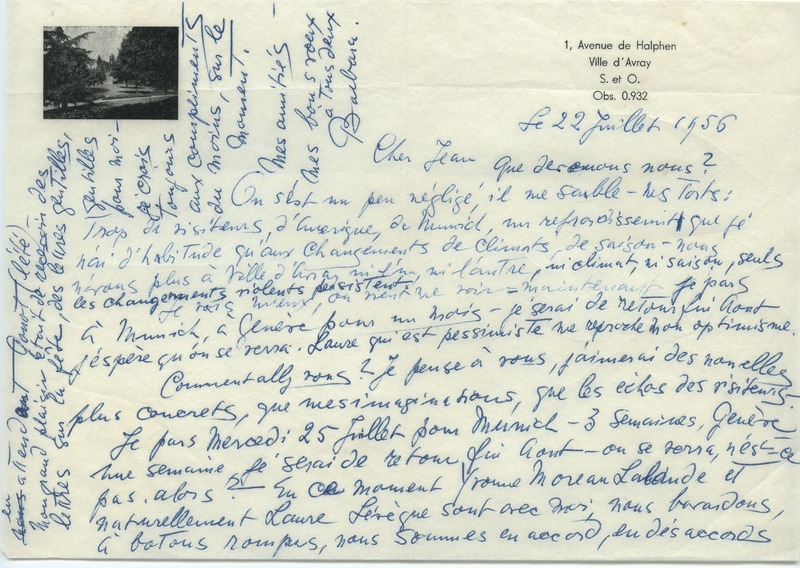 1, Avenue de Halphen
Ville d'Avray
S. et O.
Obs. 0.932
Le 22 Juillet 1956
Cher Jean
que devenons nous?
On s'est un peu négligé, il me semble - mes torts:
Trop de visiteurs, d'Amérique, de Munich, un refroidissement que je
n'ai d'habitude qu'aux changements de climats, de saison - nous
n'avons plus à Ville d'Avray ni l'un, ni l'autre, ni climat, ni saison, seuls
les changements violents persistent
Je vais mieux, on vient me voir = maintenant je pars
à Munich, à Genève pour un mois - je serai de retour fin Aout
j'espère qu'on se verra. Laure qui est pessimiste me reproche mon optimisme.
Comment allez vous? Je pense à vous, j'aimerai des nouvelles
plus concrets, que mes imaginations, que les échos des visiteurs.
Je pars Mercredi 25 Juillet pour Munich - 3 semaines, Genève
une semaine je serai de retour fin Aout - on se verra, n'est-ce
pas. alors? - En ce moment Yvonne Moreau Lalande et
naturellement Laure Lévèque sont avec moi, nous bavardons,
à batons rompus, nous sommes en accord, en désaccords
en attendant (l'été) -
Mon grand plaisir était de recevoir des
lettres sur la fête, des lettres gentilles,
gentilles
pour moi -
je crois
toujours
aux compliments
du moins, sur le
moment.
Mes amitiés -
mes bons voeux
à tous deux
Barbara.